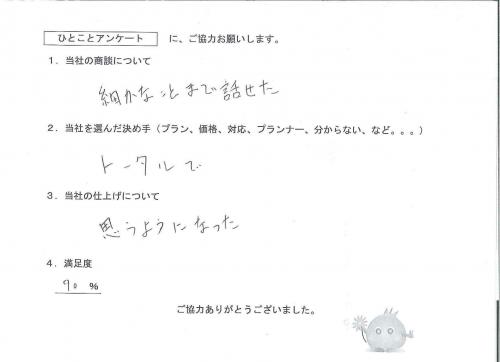 ひとことアンケート に、ご協力お願いします。
1．当社の商談について
細かなことまで話せた
2．当社を選んだ決め手（プラン、価格、対応、プランナー、分からない、など。。。）
トータルで
3．当社の仕上げについて
思うようになった
4．満足度
90 %
ご協力ありがとうございました。